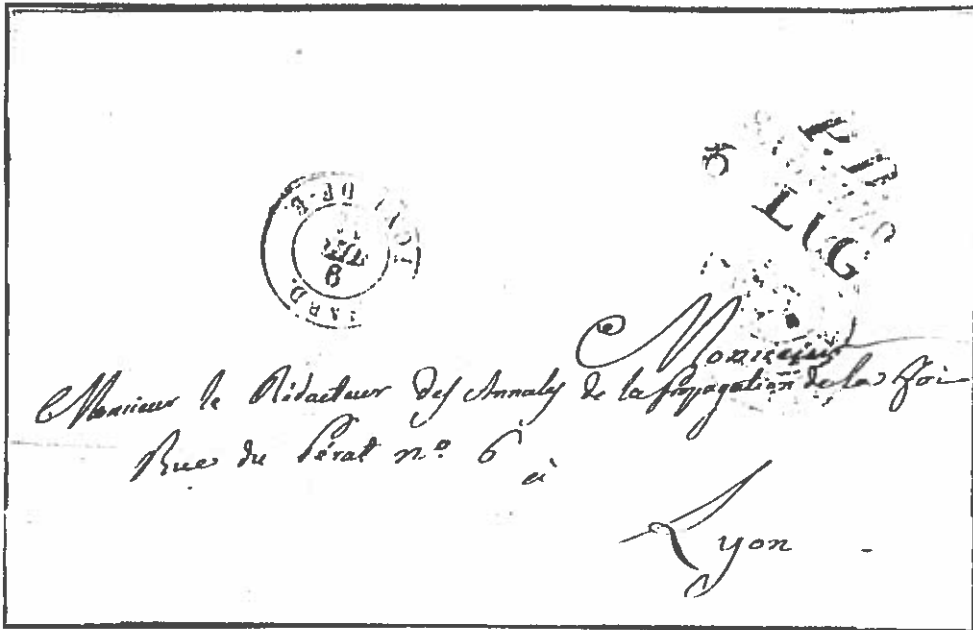 P.P.
LUG
6
Monsieur
Monsieur le Rédacteur des Annales de la propagation de la foi
Rue du Pérat nº 6
à
Lyon